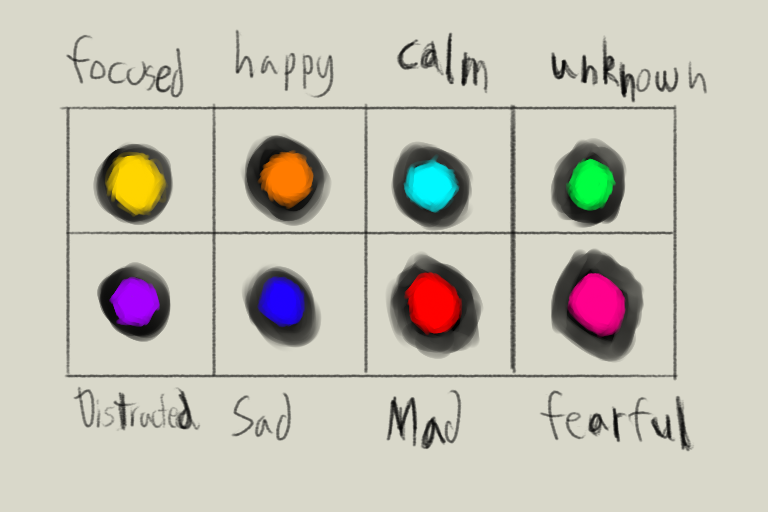 focused happy calm unknown
Distracted Sad Mad fearful